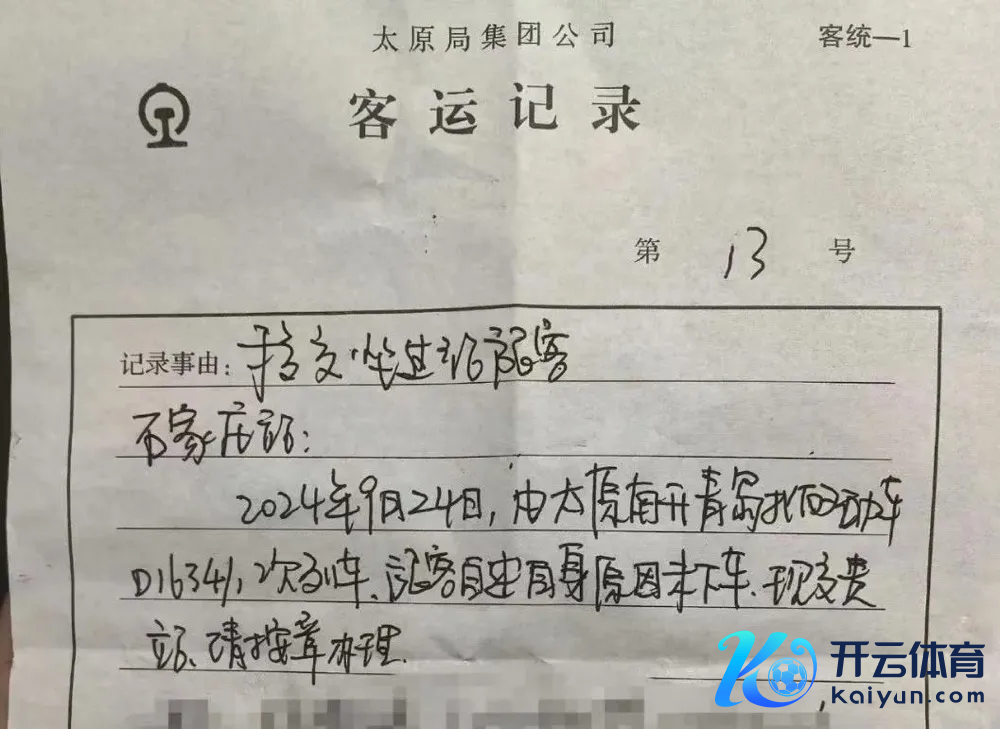 太原局集团公司
客统—1
客运记录
第 13 号
记录事由：移交坐过站旅客
石家庄站：
2024年9月24日，由太原南开青岛北的动车
D1634/1次列车、旅客自述自身原因未下车、现交贵
站、请按章办理.
开云体育
kaiyun.com